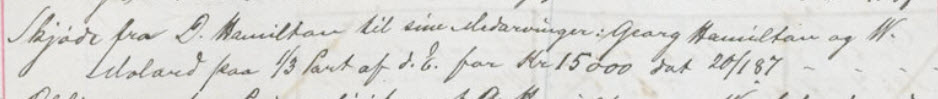 Skjøde fra D. Hamilton til sine Medarvinger: Georg Hamilton og W.
Molard paa 1/3 Part af d. E. for Kr 15000 dat 20/1 87 - - - -